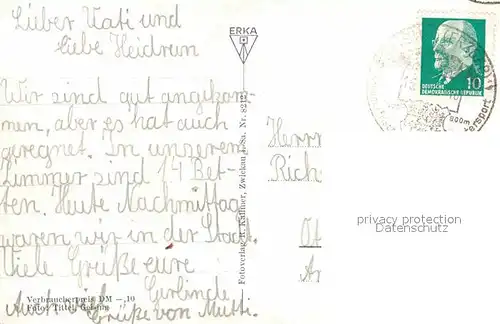 Lieber Vati und
liebe Heidrun
Wir sind gut angekom-
men, aber es hat auch
geregnet. In unserem
Zimmer sind 14 Bet-
ten. Heute Nachmittag
waren wir in der Stadt.
Viele Grüße eure
Gerlinde
Auch Grüße von Mutti.
Verbraucherpreis DM —,10
Foto: Tittel,
ERKA
Fotoverlag R. Kallmer, Zwickau i. Sa. Nr. 8212
DEUTSCHE
DEMOKRATISCHE REPUBLIK
10
900m
Herrn
Rich
Ot
Ar
privacy protection
Datenschutz